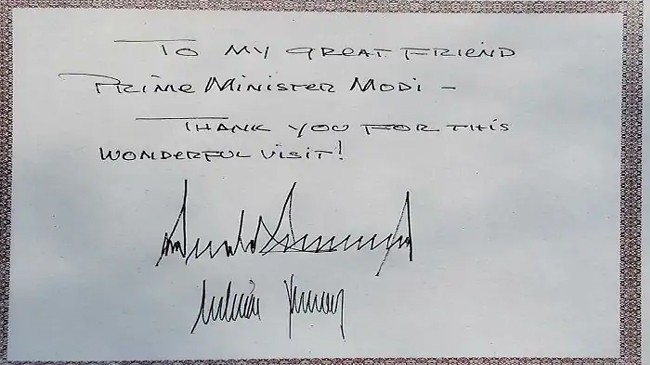 TO MY GREAT FRIEND
PRIME MINISTER MODI -
THANK YOU FOR THIS
WONDERFUL VISIT!